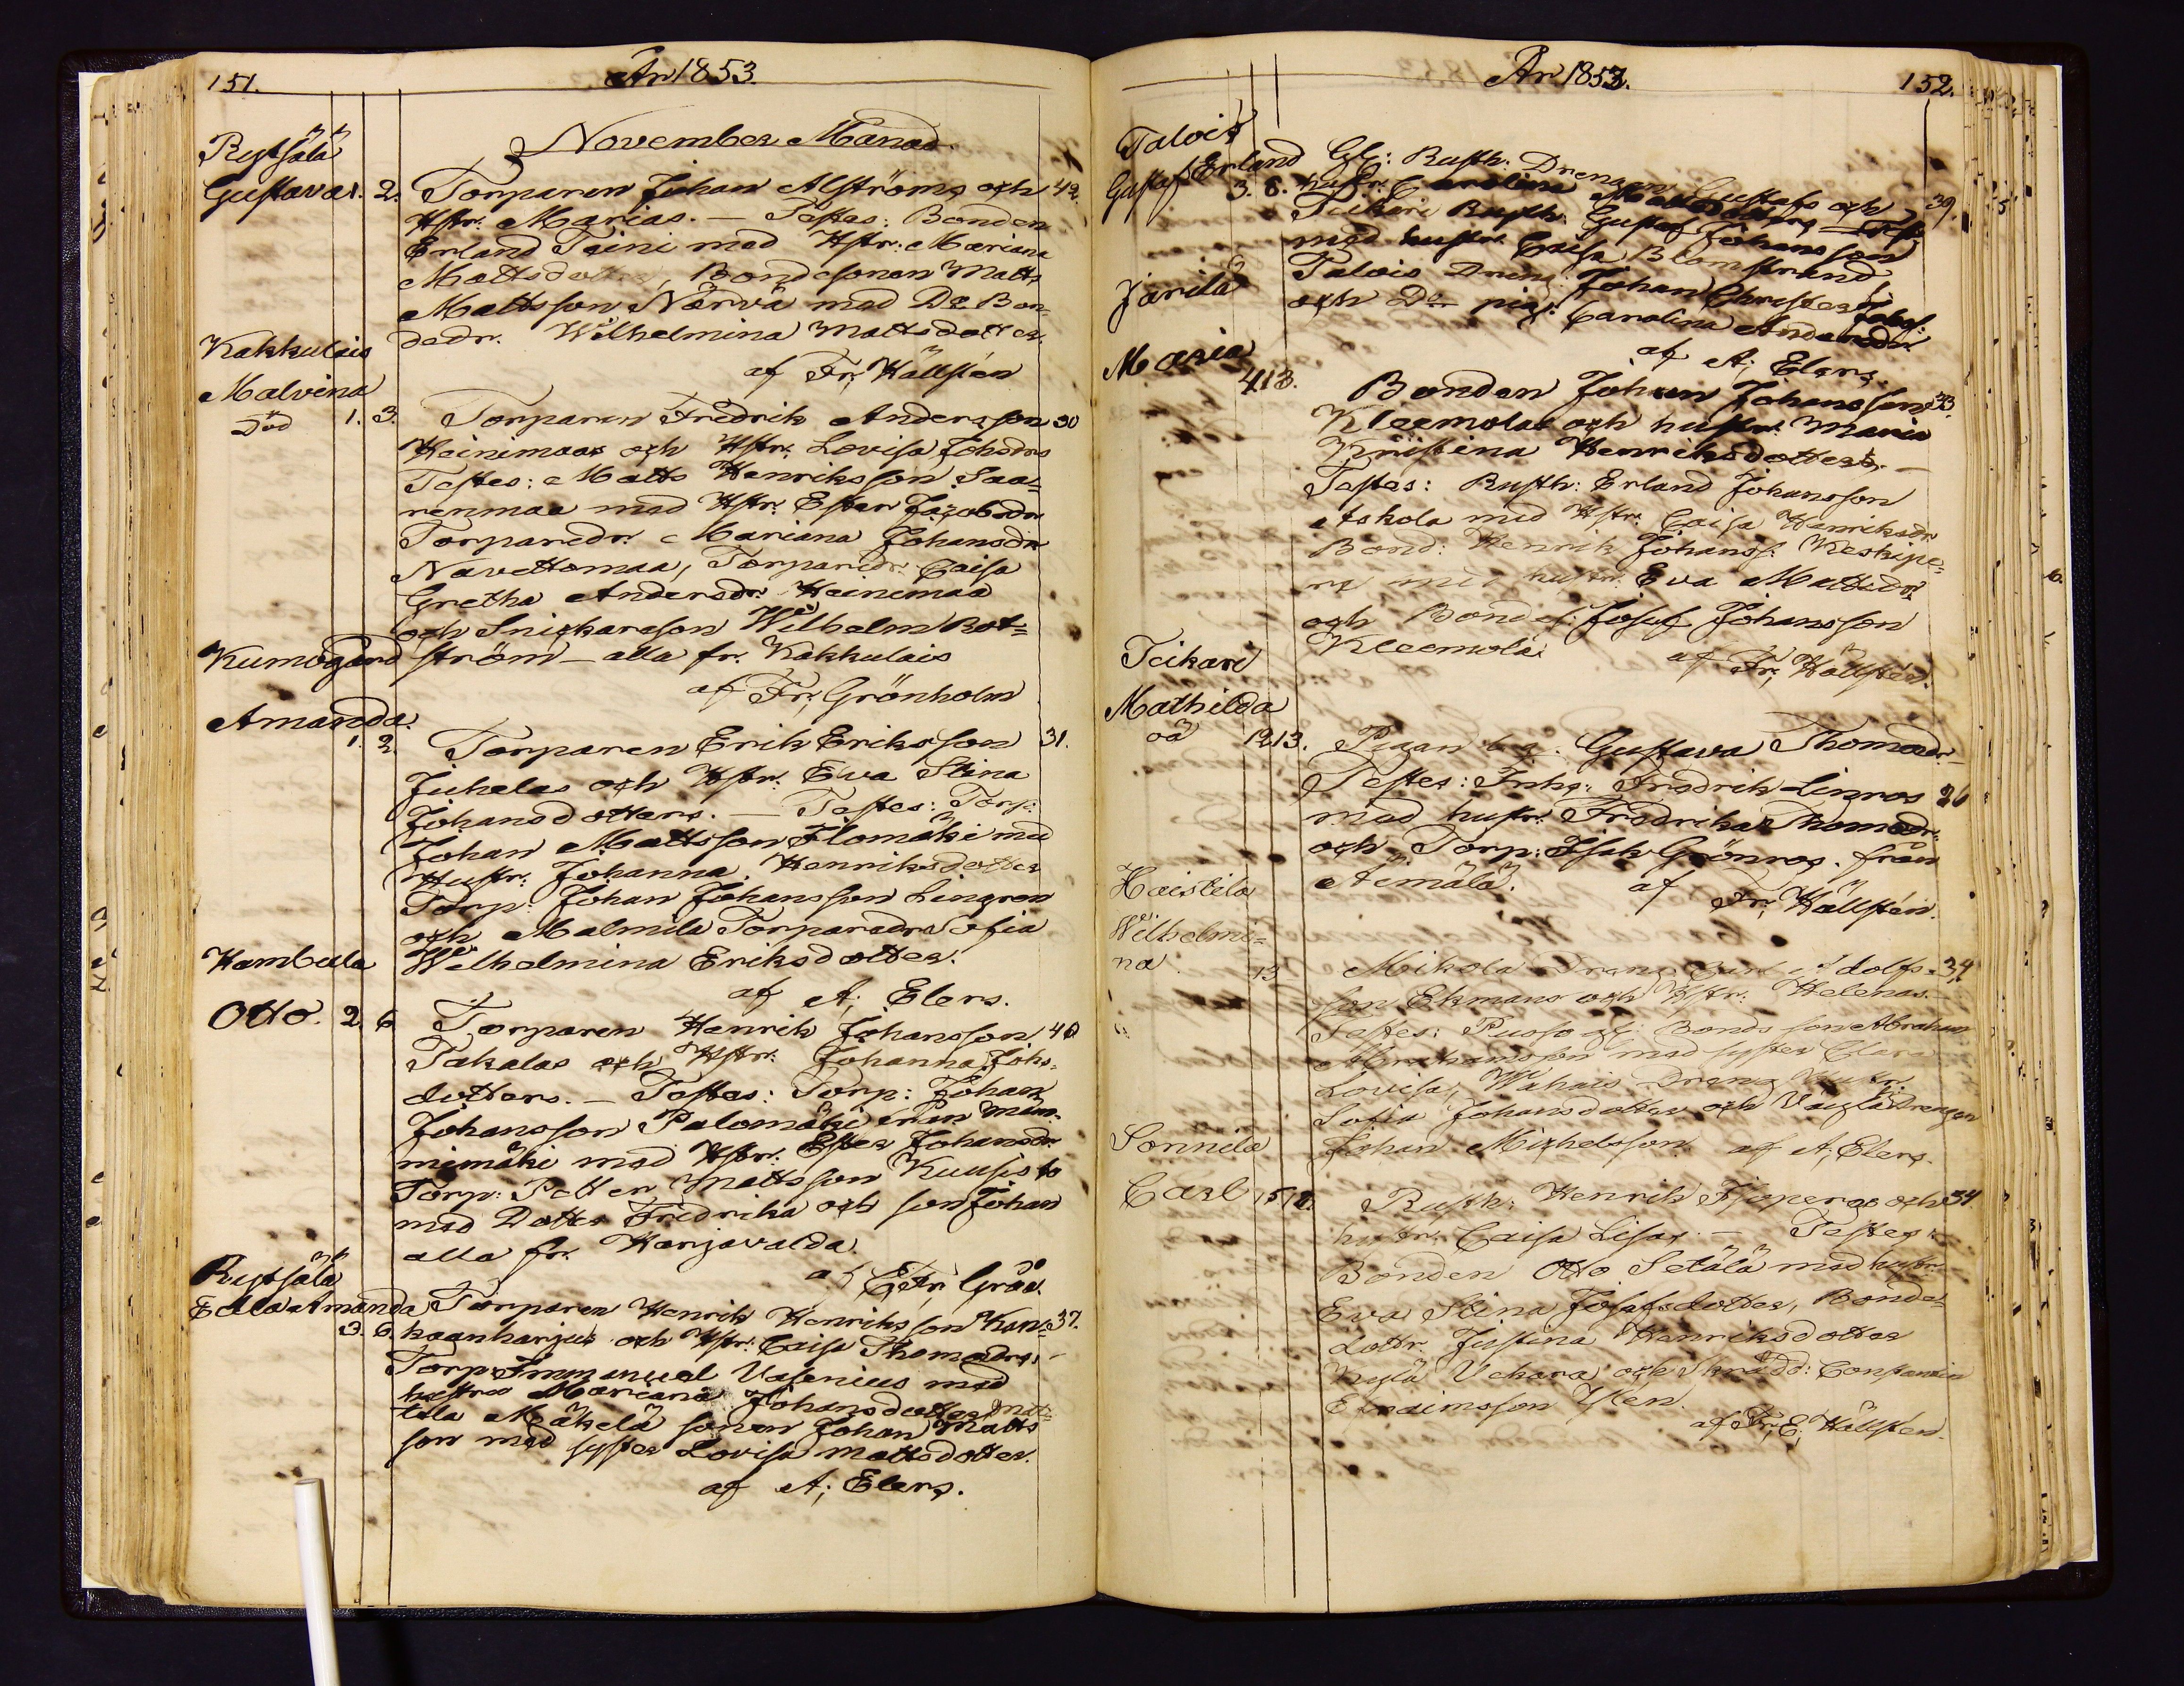 151.
År 1853.
November Månad.
Rytsälä
Gustava 1. 2. Torparen Johan Alströms och 42.
Hstr. Marias. — Testes: Bonden
Erland Teini med Hstr: Mariana
Mattsdotter, Bondesonen Matts
Mattsson Närvä med Do Bon-
dedr. Wilhelmina Mattsdotter.
af Fr; Hällstén
Kakkulais
Malvina
Död 1. 3. Torparen Fredrik Andersson 30
Heinimaas och Hstr. Lovisa Johsdrs
Testes: Matts Henriksson Saa-
renmaa med Hstr. Ester Jacobsdr
Torparedr. Mariana Johansdr
Navettomaa, Torparedr. Caisa
Gretha Andersdr. Heinimaa
och Snickareson Wilhelm Rot-
ström — alla fr. Kakkulais
af Fr; Grönholm
Kumogård
Amanda.
1. 2. Torparen Erik Eriksson 31.
Juhelas och Hstr. Eva Stina
Johansdotters. — Testes: Torp:
Johan Mattsson Ilomäki med
Hustr: Johanna Henriksdotter
Torp: Johan Johansson Lingren
och Malmila Torparedr Sofia
Wilhelmina Eriksdotter.
af A; Elers.
Hambula
Otto. 2. 6 Torparen Henrik Johansson 40
Takalas och Hstr. Johanna Johs-
dotters. — Testes: Torp: Johan
Johansson Palomäki från
mimäki med Hstr. Ester Johansdr
Torp: Petter Mattsson Kuusisto
med Dotter Fredrika och son Johan
alla fr. Harjavalda.
af Fr; Grö.
Rytsälä
Edla Amanda Torparen Henrik Henriksson 37.
3. 6. kaanharjus och Hstr: Caisa Thomsdrs.
Torp: Immanuel Vasenius med
hustru Mariana Johansdotter Mat-
tila Mäkelä sonen Johan Matts
son med syster Lovisa Mattsdotter.
af A; Elers.
År 1853.
152.
Talois
Gustaf Erland Gl; Rusth: Drengen Gustafs och 39.
3. 8. hustr. Carolina
Teikari Rusth: Gustaf Johansson
med hustr. Caisa Blomstrand
Talois Dreng Johan Christers
och Do pig. Carolina Andersdr.
af A; Elers.
Järilä
Maria
4. 13. Bonden Johan Johansson 33.
Kleemolas och hustr. Maria
Kristina Henriksdotters. —
Testes: Rusth: Erland Johansson
Askola med Hstr. Caisa Henriksdr
Bond: Henrik Johanss: Keskipe-
re med hustr. Eva Mattsdr
och Bondes: Josef Johansson
Kleemola.
af Fr; Hällstén.
Teikari
Mathilda
oä 12. 13. Pigan Gustava Thomasdr. —
Testes: Inhs: Fredrik Lingros 26
med hustr. Fredrika Thomasdr.
och Torp: Isak Grönros. från
Aimälä.
af Fr; Hällstén.
Haistila
Wilhelmi-
na. 13 Mikola Dreng Carl Adolfs- 34
son Ekmans och Hstr. Helenas. —
Testes: Pusso gl: Bondeson Abraham
Abrahamsson med syster Clara
Lovisa, Wähäis Dreng Hustr.
Sofia Johansdotter och Drengen
Johan Michelsson. af A; Elers.
Sonnila
Carl 15 17. Rusth: Henrik och 34.
hustr. Caisa Lisas. — Testes:
Bonden Otto Setälä med hustr.
Eva Stina Josefsdotter, Bonde-
dottr. Justina Henriksdotter
och Skrädd: Constantin
Efraimsson
af Fr; E; Hällstén.